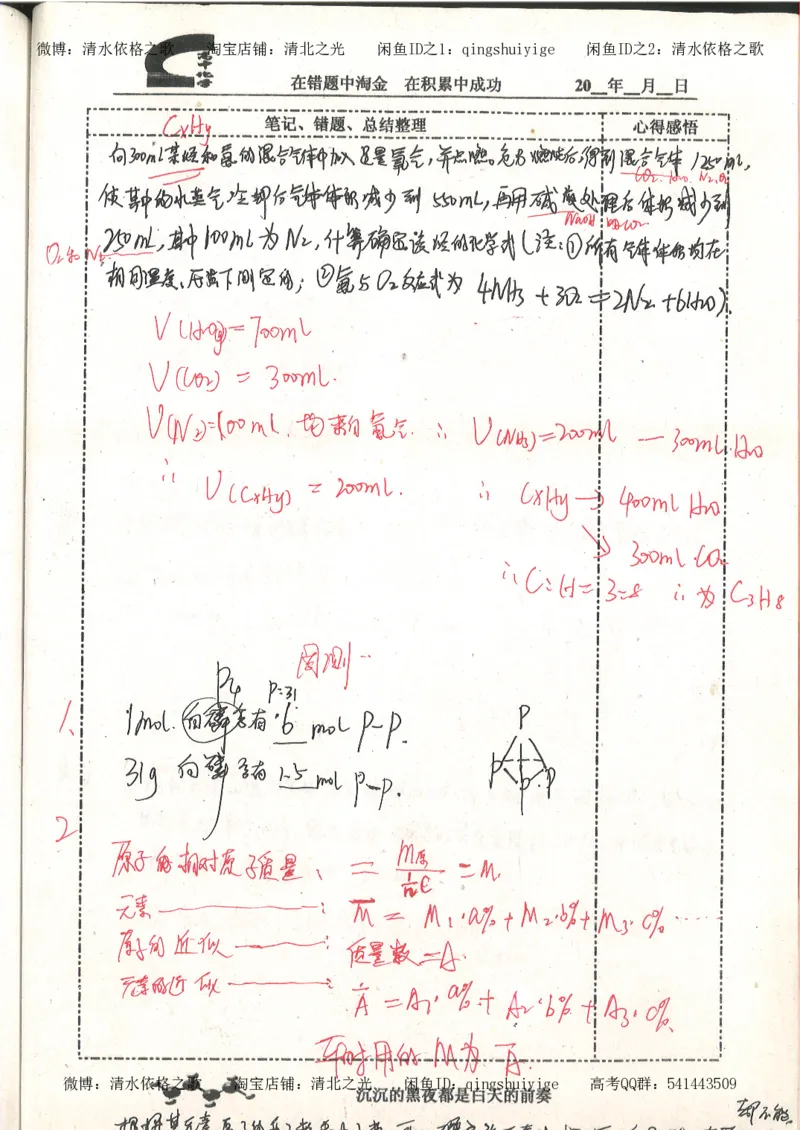 微博：清水依格之歌 淘宝店铺：清北之光 闲鱼ID之1：qingshuiyige 闲鱼ID之2：清水依格之歌
在错题中淘金 在积累中成功 20__年__月__日
笔记、错题、总结整理 心得感悟
CxHy
向300mL某烃和氨的混合气体中加入足量氧气,并点燃,充分燃烧后,得到混合气体1250mL,
CO₂、H₂O、N₂、O₂
使其中的水蒸气冷却后气体体积减少到550mL,再用碱液处理后体积减少到
NaOH 吸CO₂
O₂和N₂
250mL,其中100mL为N₂,计算确定该烃的化学式(注:①所有气体体积均在
相同温度、压强下测定的;②氨与O₂反应式为 4NH₃+3O₂=2N₂+6H₂O).
V(H₂O)=700mL
V(CO₂)=300mL.
V(N₂)=100mL.均来自氨气.∴V(NH₃)=200mL — 300mL.H₂O
∴V(CxHy)=200mL. ∴CxHy→400mL H₂O
↘300mL.CO₂
∴C:H=3:8 ∴为C₃H₈
周测
P₄ P=31
1、1mol.白磷含有 6 mol P-P.
31g 白磷含有 1.5 mol P-P.
P
P P P
2
原子的相对原子质量、=m原/(1/12 C)=M.
元素——: M̄=M₁·a%+M₂·b%+M₃·c%……
原子的近似——: 质量数=A.
元素的近似——: Ā=A₁·a%+A₂·b%+A₃·c%.
平时用的M为Ā.
微博：清水依格之歌 淘宝店铺：清北之光 闲鱼ID：qingshuiyige 高考QQ群：541443509
沉沉的黑夜都是白天的前奏
却不能.